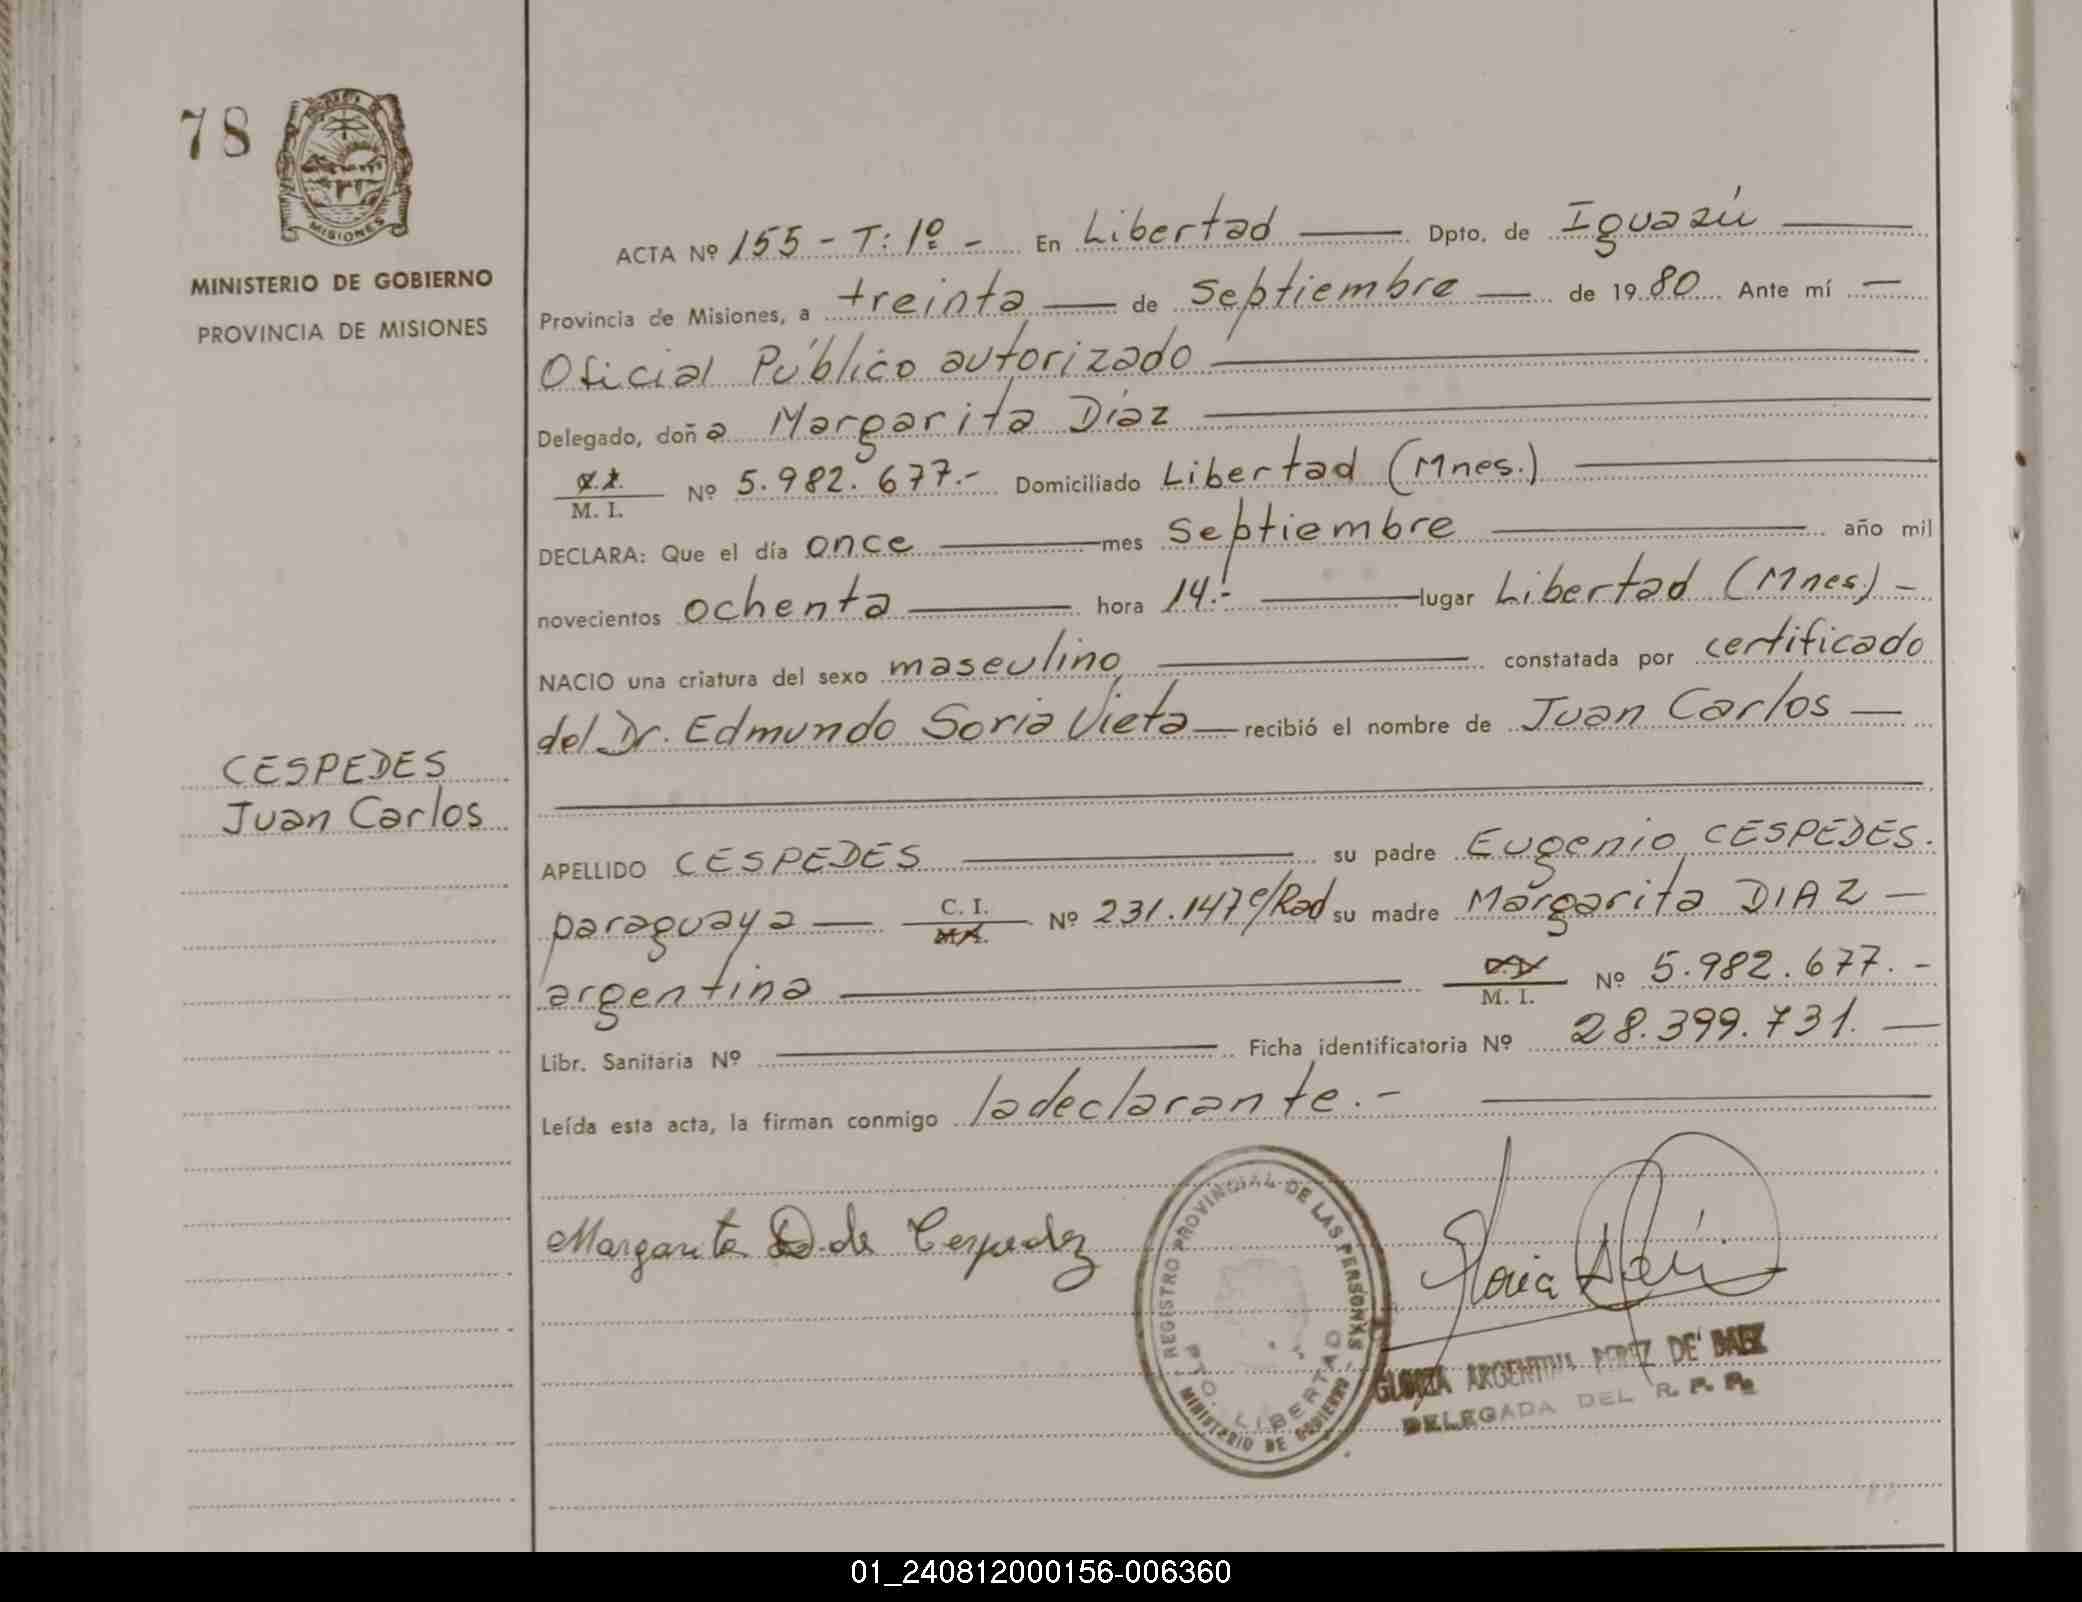 78
MISIONES
MINISTERIO DE GOBIERNO
PROVINCIA DE MISIONES
CESPEDES
Juan Carlos
ACTA Nº 155 - T: 1º - En Libertad Dpto. de Iguazú
Provincia de Misiones, a treinta de septiembre de 1980 Ante mí
Oficial Público autorizado
Delegado, doña Margarita Díaz
C. I.
M. I. Nº 5.982.677.- Domiciliado Libertad (Mnes.)
DECLARA: Que el día once mes septiembre año mil
novecientos ochenta hora 14.- lugar Libertad (Mnes.) -
NACIO una criatura del sexo masculino constatada por certificado
del Dr. Edmundo Soria Vieta recibió el nombre de Juan Carlos
APELLIDO CESPEDES su padre Eugenio CESPEDES.
paraguaya C. I. Nº 231.147 c/Rad su madre Margarita DIAZ
M. I.
argentina C. I. Nº 5.982.677.-
M. I.
Libr. Sanitaria Nº Ficha identificatoria Nº 28.399.731.
Leída esta acta, la firman conmigo la declarante.-
Margarita D. de Cespedez
REGISTRO PROVINCIAL DE LAS PERSONAS
PTO. LIBERTAD
MINISTERIO DE GOBIERNO
GLORIA ARGENTINA PEREZ DE BAEZ
DELEGADA DEL R. P. P.
01_240812000156-006360